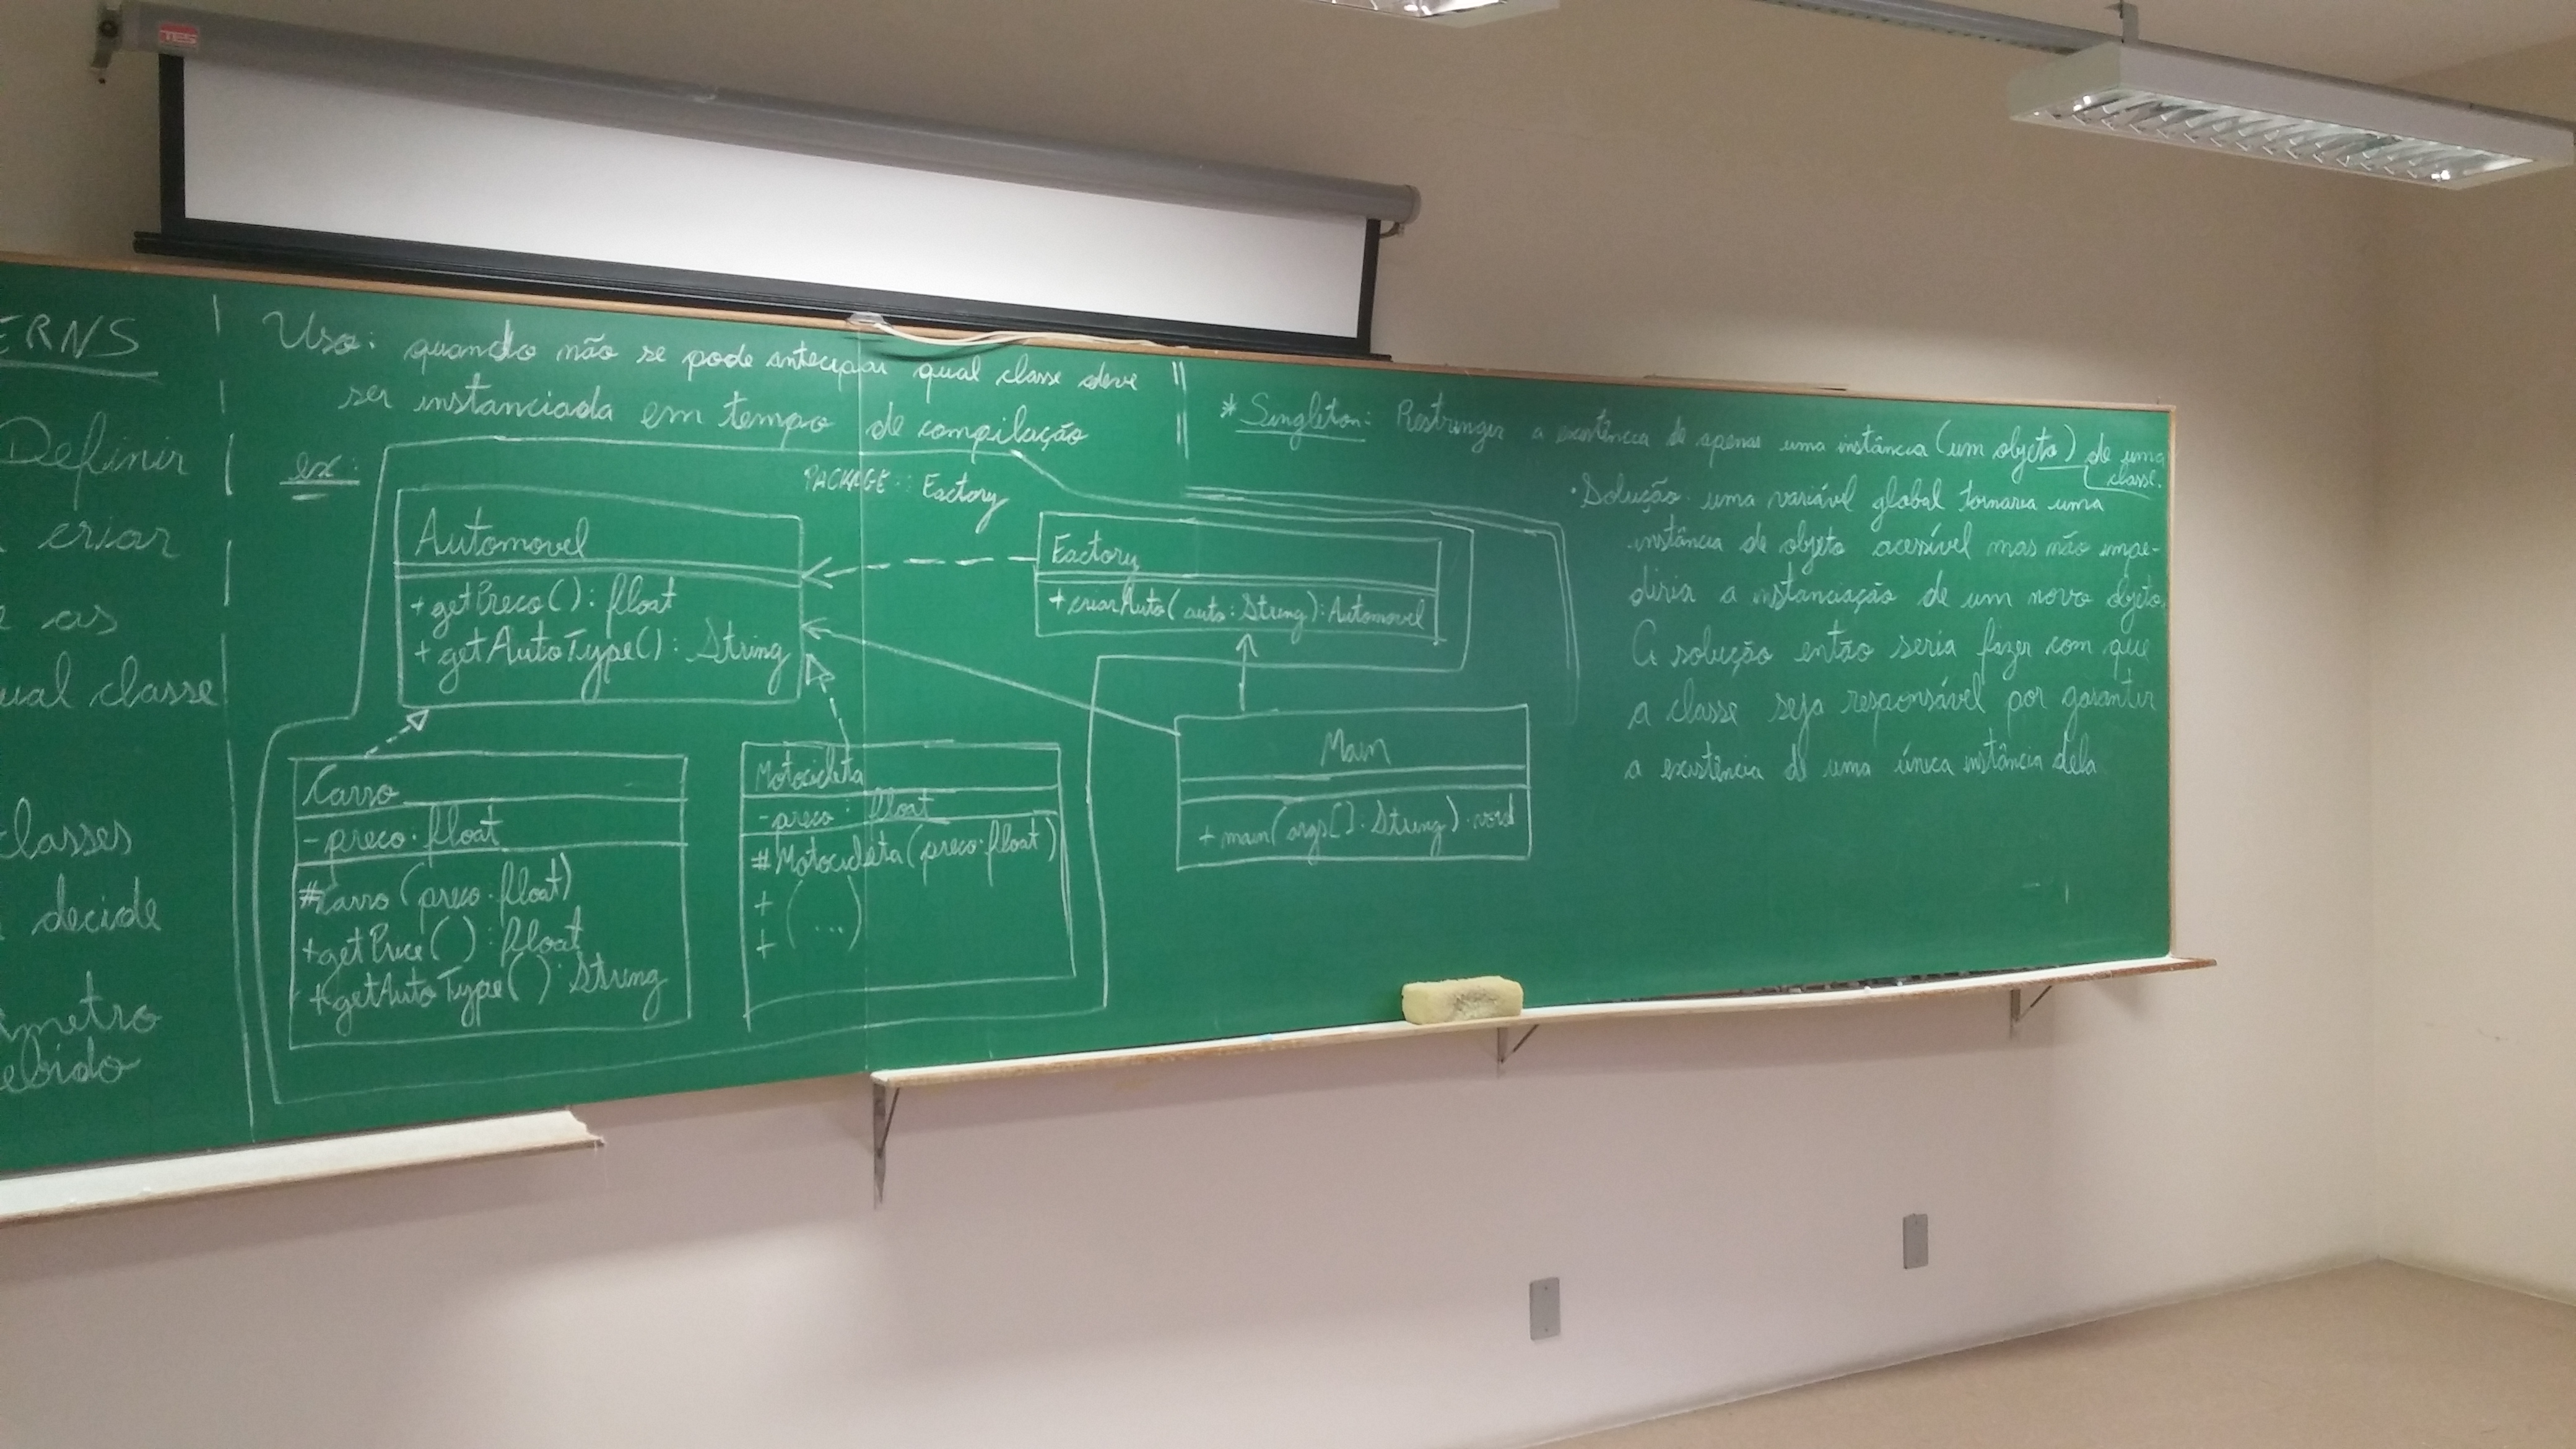 TES
ERNS
Definir
criar
as
ual classe
classes
decide
metro
ebido
Uso: quando não se pode antecipar qual classe deve
ser instanciada em tempo de compilação
ex:
PACKAGE:: Factory
Automovel
+ getPreco(): float
+ getAutoType(): String
Factory
+ criarAuto(auto: String): Automovel
Carro
- preco: float
#Carro (preco: float)
+getPrice(): float
+getAutoType(): String
Motocicleta
- preco: float
#Motocicleta(preco: float)
+
+ (...)
Main
+ main(args[]: String): void
* Singleton: Restringer a existência de apenas uma instância (um objeto) de uma
classe.
• Solução: uma variável global tornaria uma
instância de objeto acessível mas não impe-
diria a instanciação de um novo objeto.
A solução então seria fazer com que
a classe seja responsável por garantir
a existência de uma única instância dela